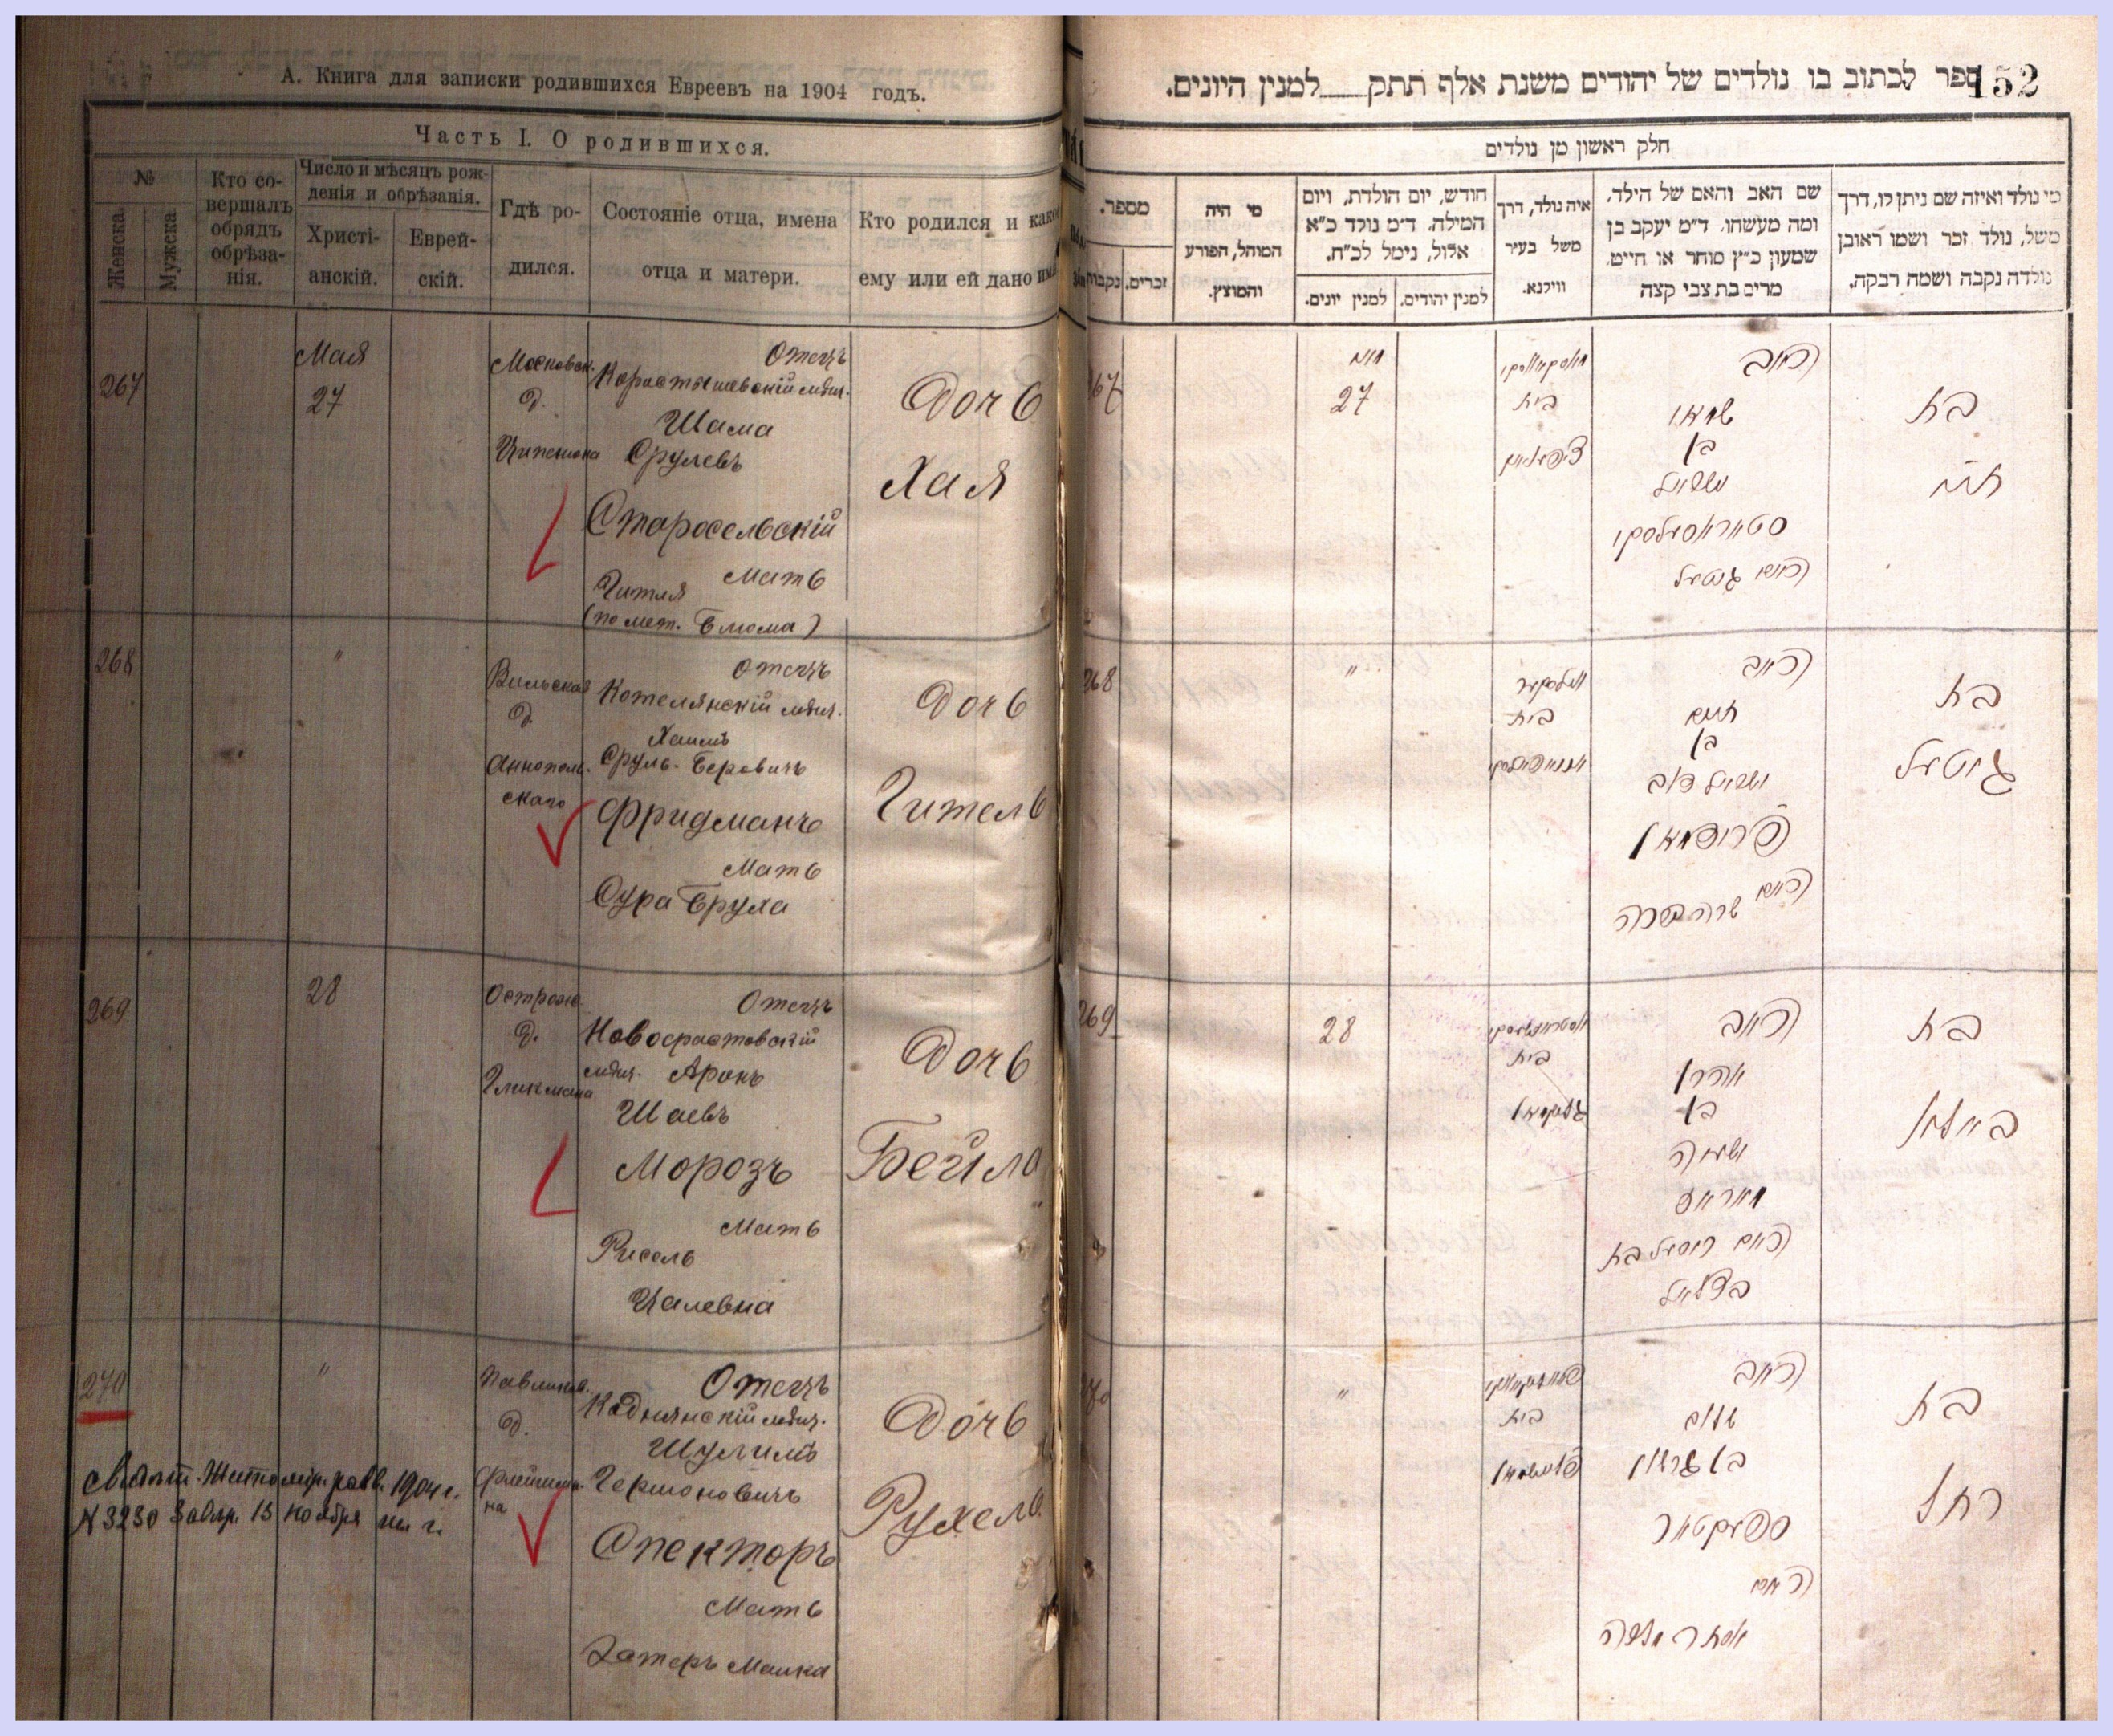 А. Книга для записки родившихся Евреевъ на 1904 годъ.
Часть I. О родившихся.
№
Женска.
Мужска.
Кто со-
вершалъ
обрядъ
обрѣза-
нія.
Число и мѣсяцъ рож-
денія и обрѣзанія.
Христі-
анскій.
Еврей-
скій.
Гдѣ ро-
дился.
Состояніе отца, имена
отца и матери.
Кто родился и како
ему или ей дано имя
267
Мая
27
Московск.
д.
Отецъ
Коростышевскій мѣщ.
Шама
Срулевъ
Старосельскій
Мать
Гитля
(по мет. Блюма)
Дочь
Хая
268
"
Вильская
д.
Аннополь-
скаго
Отецъ
Котелянскій мѣщ.
Хаимъ
Сруль-Беровичъ
Фридманъ
Мать
Сура Бруха
Дочь
Гитель
269
28
Острож.
д.
Гликмана
Отецъ
мѣщ. Аронъ
Шаевъ
Морозъ
Мать
Рисель
Цалевна
Дочь
Бейла
270
"
д.
Отецъ
Коднянскій мѣщ.
Шулимъ
Гершоновичъ
Спекторъ
Мать
Эстеръ Малка
Дочь
Рухель
свидѣт. Житомір. равв. 1904 г.
N 3230 15 ноября
152
ספר לכתוב בו נולדים של יהודים משנת אלף תתק למנין היונים.
חלק ראשון מן נולדים
מספר.
נקבות
זכרים.
מי היה
המוהל, הפורע
והמוצץ.
חודש, יום הולדת, ויום
המילה. ד״מ נולד כ״א
אלול, נימל לכ״ח.
למנין יונים.
למנין יהודים.
איה נולד, דרך
משל בעיר
ווילנא.
שם האב והאם של הילד.
ומה מעשהו. ד״מ יעקב בן
שמעון כ״ץ סוחר או חייט.
מרים בת צבי קצה
מי נולד ואיזה שם ניתן לו, דרך
משל, נולד זכר ושמו ראובן
נולדה נקבה ושמה רבקה.
267
מאי
27
בית
האב
בן
סטאראסעלסקי
האם גיטעל
בת
חיה
268
"
בית
האב
חיים
בן
ישראל דוב
פרידמאן
האם שרה ברכה
בת
גיטעל
269
28
בית
גליקמאן
האב
אהרן
בן
ישעיה
מאראז
האם ריסעל בת
בצלאל
בת
ביילא
270
"
בית
האב
שלום
בן גרשון
ספעקטאר
האם
אסתר מלכה
בת
רחל